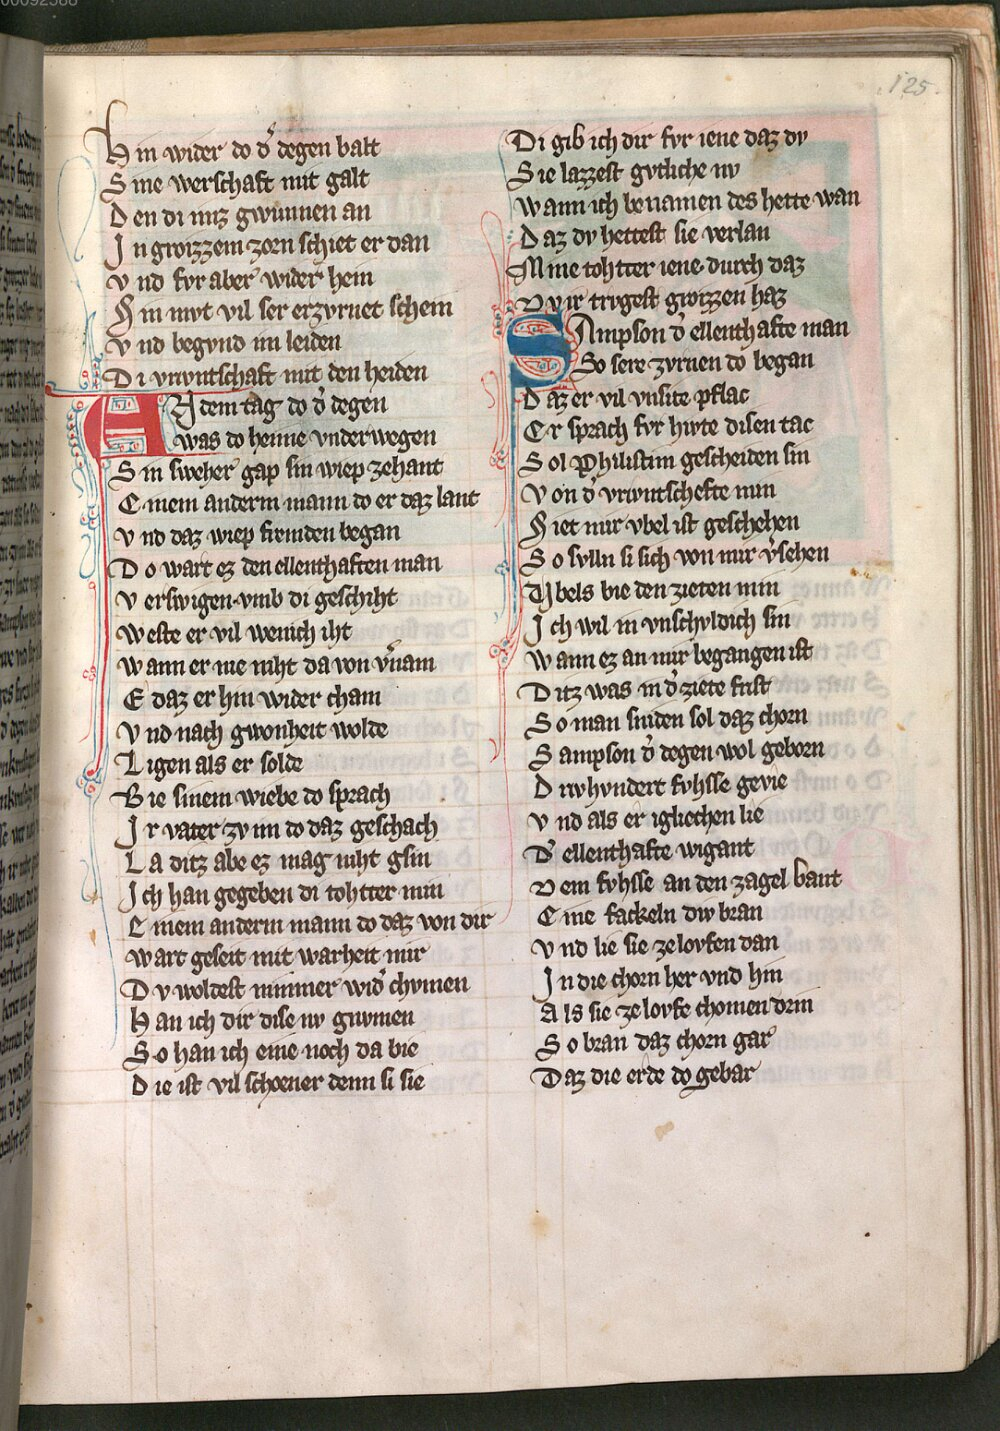 125
Hin wider do d' degen balt
Sine werschaft mit galt
Den di imz gwunnen an
In groizzem zorn schiet er dan
Vnd fvr aber wider hein
Sin mvt vil ser erzvrnet schein
Vnd begvnd im leiden
Di vrivntschaft mit den heiden
AN dem tag do d' degen
was do henne vnderwegen
Sin sweher gap sin wiep zehant
Einem anderm mann do er daz lant
Vnd daz wiep fremden began
Do wart ez den ellenthaften man
Verswigen vmb di geschiht
Weste er vil wenich iht
Wann er nie niht da von v'nam
E daz er hin wider cham
Vnd nach gwonheit wolde
Ligen als er solde
Bie sinem wiebe do sprach
Ir vater zv im do daz geschach
La ditz abe ez mag niht gsin
Ich han gegeben di tohtter min
Einem anderm mann do daz von dir
Wart geseit mit warheit mir
Dv woldest nimmer wid' chvmen
Han ich dir dise nv gnvmen
So han ich eine noch da bie
Die ist vil schoener denn si sie
Di gib ich dir fvr iene daz dv
Sie lazzest gvtliche nv
Wann ich benamen des hette wan
Daz dv hettest sie verlan
Mine tohtter iene durch daz
Dv ir trvgest groizzen haz
SAmpson d' ellenthafte man
So sere zvrnen do began
Daz er vil vnsite pflac
Er sprach fvr hivte disen tac
Sol Philistim gescheiden sin
Von d' vrivntschefte min
Hiet mir vbel ist geschehen
So svlln si sich von mir v'sehen
Vbels bie den zieten min
Ich wil in vnschvldich sin
Wann ez an mir begangen ist
Ditz was in d' ziete frist
So man sniden sol daz chorn
Sampson d' degen wol geborn
Drivhvndert fvhsse gevie
Vnd als er igliechen lie
D' ellenthafte wigant
Dem fvhsse an den zagel bant
Eine fackeln div bran
Vnd lie sie ze lovfen dan
In die chorn her vnd hin
Als sie ze lovfe chomen drin
So bran daz chorn gar
Daz die erde do gebar